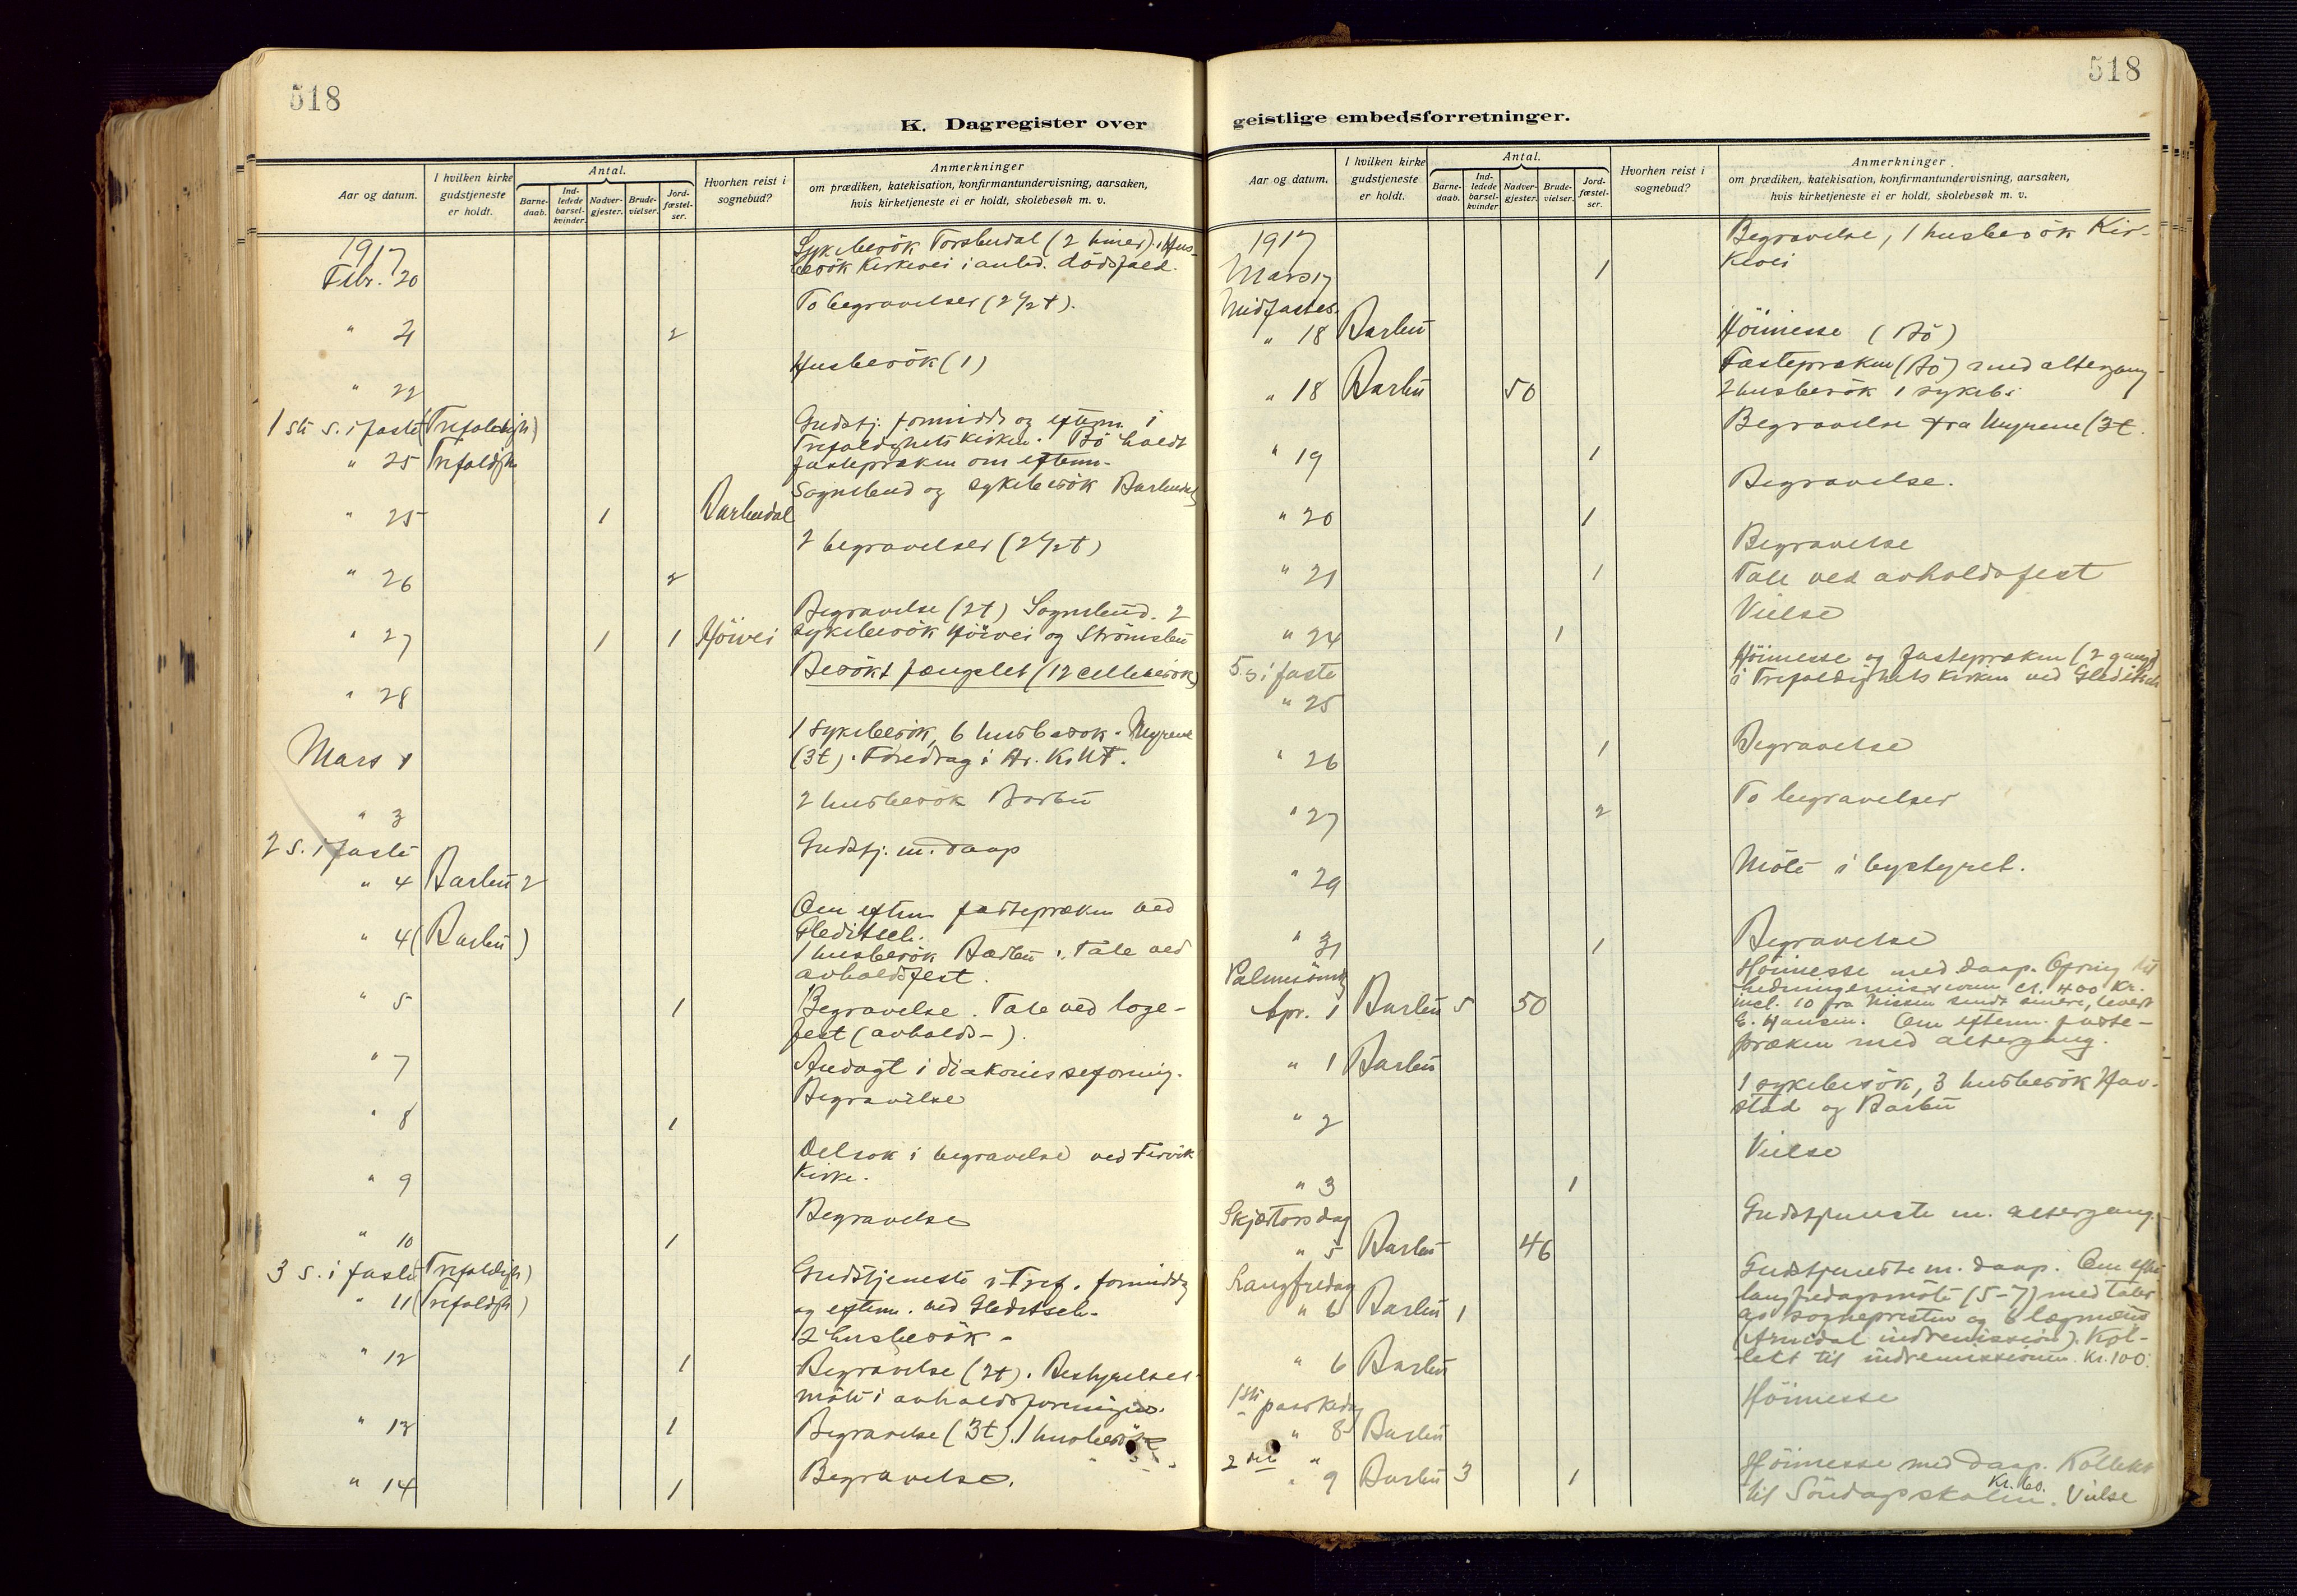 518
K. Dagregister over
Aar og datum.
I hvilken kirke gudstjeneste er holdt.
Antal.
Barne-daab.
Ind-ledede barsel-kvinder.
Nadver-gjester.
Brude-vielser.
Jord-fæstel-ser.
Hvorhen reist i sognebud?
Anmerkninger
om prædiken, katekisation, konfirmantundervisning, aarsaken,
hvis kirketjeneste ei er holdt, skolebesøk m. v.
1917
Sykebesök Torsbudal (2 timer). Hus-
Febr. 20 besök Kirkevei i anled. dödsfald.
To begravelser (2 1/2 t).
" 21 2
Husbesök (1)
" 22
1 ste s. i faste (Trefoldigh) Gudstj. formidd. og efterm. i
Trefoldighetskirken. Bö holdt
" 25 Trefoldigh fastepræken om efterm.
Sognebud og sykebesök Barbudal
" 25 1 Barbudal
2 begravelser (2 1/2 t)
" 26 2
Begravelse (2t) Sognebud. 2
" 27 1 1 Höivei sykebesök Höivei og Strömsbu
Besökt fængslet (12 cellebesök)
" 28
1 sykebesök, 6 husbesök. Myrene
Mars 1 (3t). Foredrag i Ar. K.U.F.
2 husbesök Barbu
" 3
2 s. i faste Gudstj. m. daap
" 4 Barbu 2
Om efterm fastepræken ved
" 4 (Barbu) Gleditsch.
1 husbesök Barbu. Tale ved
avholdsfest.
" 5 1 Begravelse. Tale ved loge-
fest (avholds-).
" 7 Andagt i diakonisseforening.
Begravelse
" 8 1
Deltok i begravelse ved Fervik
" 9 Kirke.
Begravelse
" 10 1
3 s. i faste (Trefoldigh) Gudstjeneste i Tref. formiddag
" 11 (Trefoldigh) og efterm. ved Gleditsch.
2 husbesök -
" 12 1 Begravelse (2t). Bestyrelses-
möte i avholdsforeningen.
" 13 1 Begravelse (3t). 1 husbesök
" 14 1 Begravelse.
518
geistlige embedsforretninger.
Aar og datum.
I hvilken kirke gudstjeneste er holdt.
Antal.
Barne-daab.
Ind-ledede barsel-kvinder
Nadver-gjester.
Brude-vielser.
Jord-fæstel-ser.
Hvorhen reist i sognebud?
Anmerkninger
om prædiken, katekisation, konfirmantundervisning, aarsaken,
hvis kirketjeneste ei er holdt, skolebesøk m. v.
1917 Begravelse, 1 husbesök Kir-
Mars 17 1 kevei
Midfastes.
" 18 Barbu Höimesse (Bö)
Fastepræken (Bö) med altergang
" 18 Barbu 50 2 husbesök 1 sykebs.
Begravelse fra Myrene (3t.
" 19 1
Begravelse.
" 20 1
Begravelse
" 21 1 Tale ved avholdsfest
Vielse
" 24 1
5 s. i faste Höimesse og fastepræken (2 gange)
i Trefoldighets kirken ved Gleditsch
" 25
" 26 1 Begravelse
" 27 2 To begravelser
" 29 Möte i bystyret.
" 31 1 Begravelse
Palmesöndag Höimesse med daap. Ofring til
hedningemissionen ca. 400 kr.
Apr. 1 Barbu 5 50 incl. 10 fra Nissen sendt senere, levert
E. Hansen. Om efterm. faste-
præken med altergang.
" 1 Barbu
1 sykebesök, 3 husbesök Hav-
" 2 stad og Barbu
Vielse
" 3 1
Skjærtorsdag Gudstjeneste m. altergang.
" 5 Barbu 46
Langfredag Gudstjeneste m. daap. Om eftm
" 6 Barbu 1 langfredagsmöte (5-7) med taler
av sognepresten og 6 lægmænd
(Arendal indremission). Kol-
" 6 Barbu lekt til indremissionen. Kr. 100.
1ste paaskedag Höimesse
" 8 Barbu
2den " Höimesse med daap. Kollekt
" 9 Barbu 3 1 til Söndagsskolen. Kr. 60. Vielse